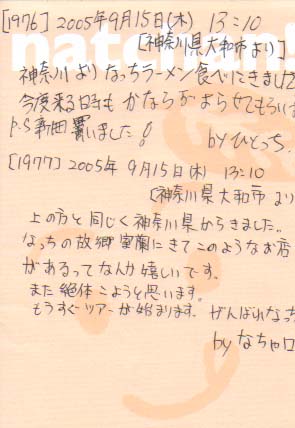 natchan!
[1976] 2005年9月15日(木) 13:10
[神奈川県大和市より]
神奈川よりなっちラーメン食べにきました
今度来る時もかならずよらせてもらいま
P.S 新曲買いました!
byひとっち.
[1977] 2005年 9月15日(木) 13:10
[神奈川県大和市より
上の方と同じく神奈川県からきました。
なっちの故郷室蘭にきてこのようなお店
があるってなんか嬉しいです。
また絶体こようと思います。
もうすぐツアーが始まります. がんばれなっち
byなちゃロ